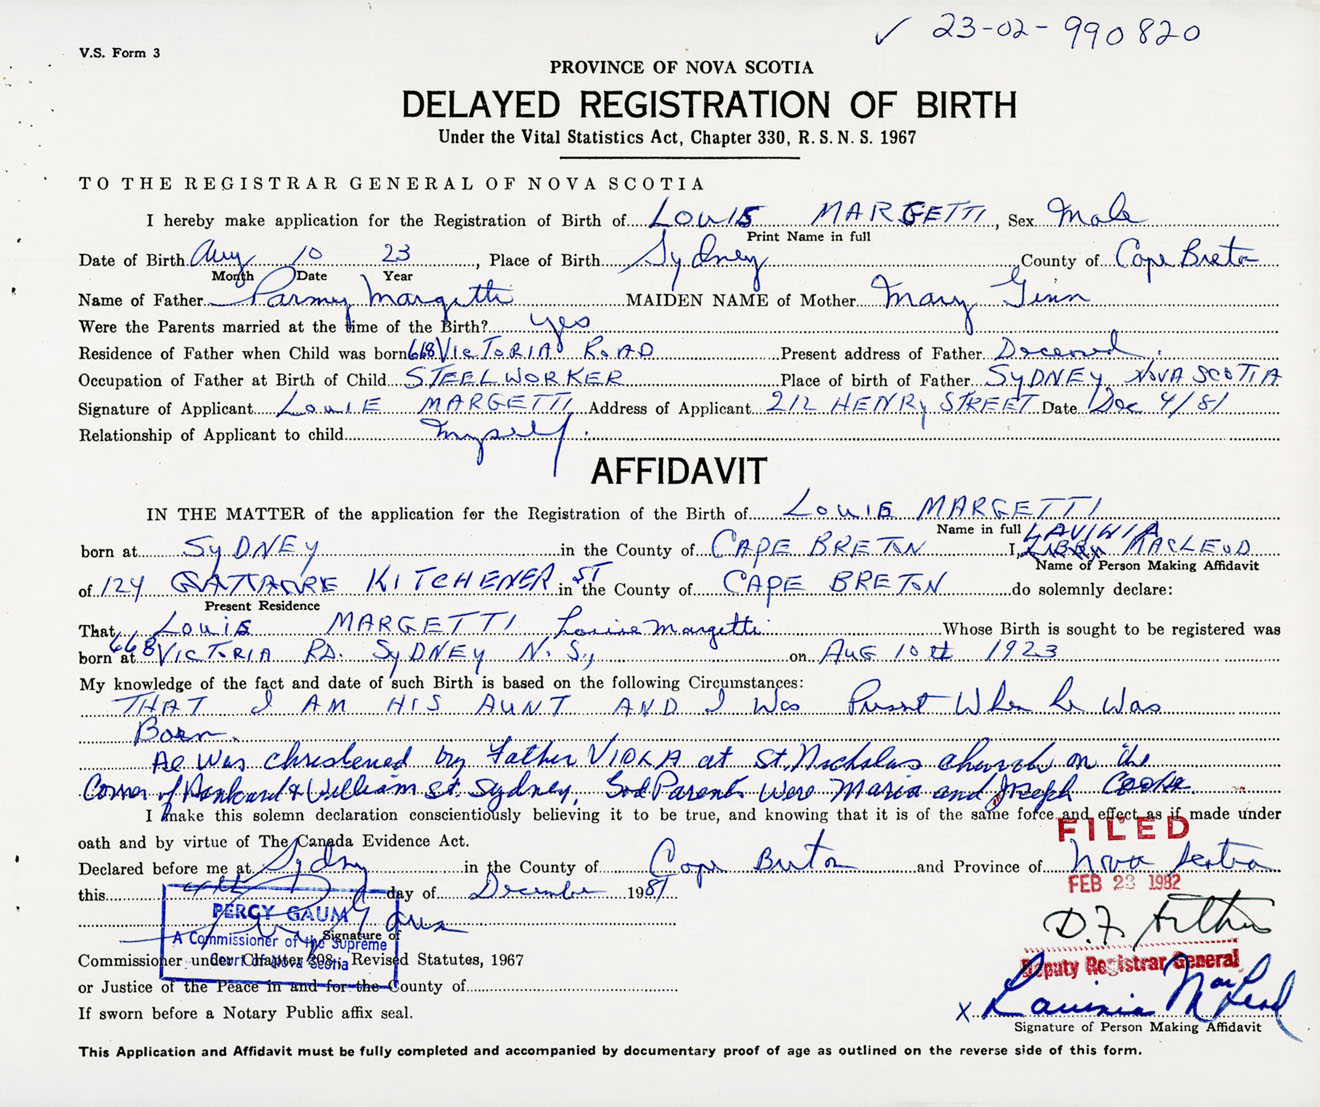 ✓ 23-02-990820
V.S. Form 3
PROVINCE OF NOVA SCOTIA
DELAYED REGISTRATION OF BIRTH
Under the Vital Statistics Act, Chapter 330, R. S. N. S. 1967
TO THE REGISTRAR GENERAL OF NOVA SCOTIA
I hereby make application for the Registration of Birth of LOUIE MARGETTI, Sex Male
Print Name in full
Date of Birth Aug 10 23, Place of Birth Sydney County of Cape Breton
Month Date Year
Name of Father Margetti MAIDEN NAME of Mother Mary Ginn
Were the Parents married at the time of the Birth? yes
Residence of Father when Child was born 668 VICTORIA ROAD Present address of Father Deceased.
Occupation of Father at Birth of Child STEELWORKER Place of birth of Father SYDNEY NOVA SCOTIA
Signature of Applicant LOUIE MARGETTI Address of Applicant 212 HENRY STREET Date Dec 4/81
Relationship of Applicant to child myself.
AFFIDAVIT
IN THE MATTER of the application for the Registration of the Birth of LOUIE MARGETTI
Name in full LAVINIA
born at SYDNEY in the County of CAPE BRETON I, MACLEOD
Name of Person Making Affidavit
of 124 KITCHENER ST in the County of CAPE BRETON do solemnly declare:
Present Residence
That LOUIE MARGETTI Louise Margetti Whose Birth is sought to be registered was
born at 668 VICTORIA RD. SYDNEY N.S., on AUG 10th 1923
My knowledge of the fact and date of such Birth is based on the following Circumstances:
THAT I AM HIS AUNT AND I WAS Present When he Was
Born.
He was christened by Father VIOLA at St. Nicholas church on the
Corner of & William St. Sydney, God Parents were Maria and Joseph
I make this solemn declaration conscientiously believing it to be true, and knowing that it is of the same force and effect as if made under
oath and by virtue of The Canada Evidence Act.
FILED
Declared before me at Sydney in the County of Cape Breton and Province of Nova Scotia
FEB 23 1982
this 4th day of December 1981
PERCY GAUM
A Commissioner of the Supreme
Court of Nova Scotia
Percy Gaum
D.F. Arthur
Signature of
Commissioner under Chapter 308, Revised Statutes, 1967
Deputy Registrar General
or Justice of the Peace in and for the County of
X Lavinia MacLeod
If sworn before a Notary Public affix seal.
Signature of Person Making Affidavit
This Application and Affidavit must be fully completed and accompanied by documentary proof of age as outlined on the reverse side of this form.